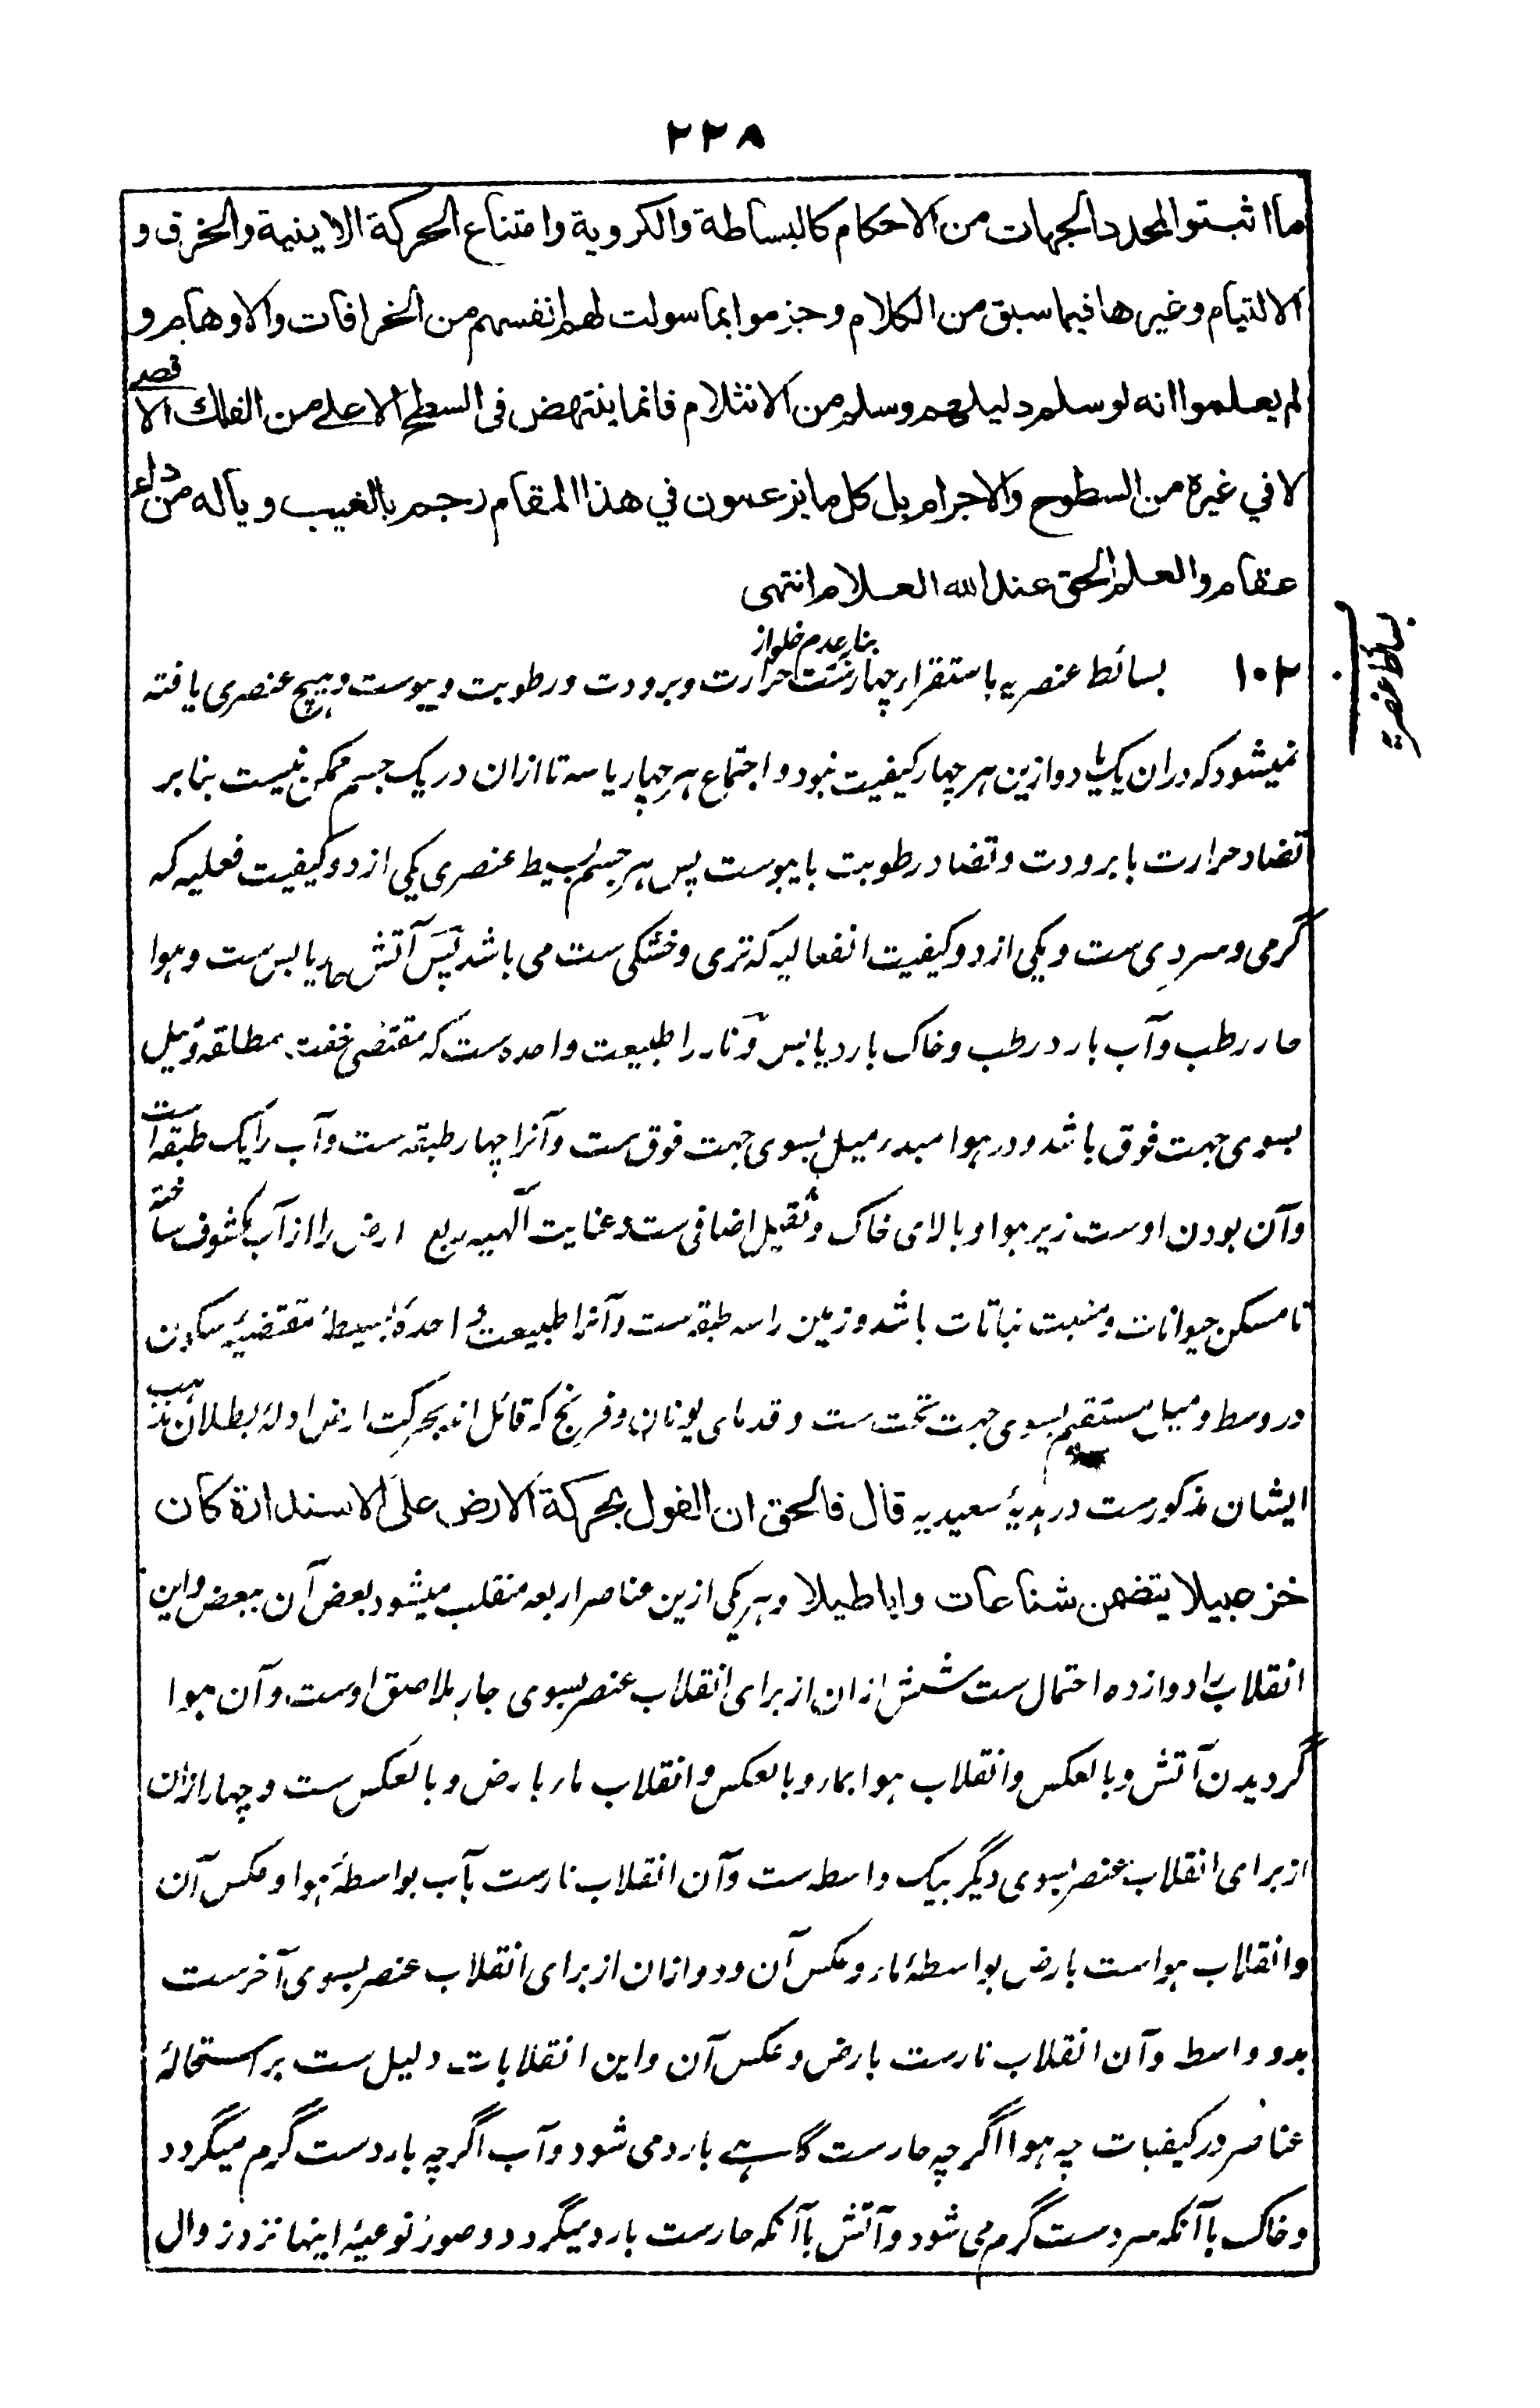 ۲۲۸
ما اثبتوا لمحدد الجهات من الاحکام کالبساطة والکرویة وامتناع الحرکة الاینیة والخرق و
الالتیام وغیرها فیما سبق من الکلام وجزموا بما سولت لهم انفسهم من الخرافات والاوهام و
لم یعلموا انه لو سلم دلیلهم وسلم من الانثلام فانما ینتهض فی السطح الاعلے من الفلك الاقصے
لا في غیره من السطوح والاجرام بل کل ما یزعمون في هذا المقام رجم بالغیب ویا له من داء
عقام والعلم الحق عند الله العلام انتهی
بسائط عنصریه
۱۰۲ بسائط عنصریه باستقراء چهارست بنابر عدم خلو از حرارت و برودت و رطوبت و یبوست و هیچ عنصری یافته
نمیشود که دران یک یا دو ازین هر چهار کیفیت نبود و اجتماع هر چهار یا سه تا ازان در یک جسم ممکن نیست بنابر
تضاد حرارت با برودت و تضاد رطوبت با یبوست پس هر جسم بسیط عنصری یکی از دو کیفیت فعلیه که
گرمی و سردی ست و یکی از دو کیفیت انفعالیه که تری و خشکی ست می باشد پس آتش حار یابس ست و هوا
حار رطب و آب بارد رطب و خاک بارد یابس و نار را طبیعت واحده ست که مقتضی خفت مطلقه و میل
بسوی جهت فوق باشد و در هوا مبدء میل بسوی جهت فوق ست و آنرا چهار طبقه ست و آب را یک طبقه است
و آن بودن اوست زیر هوا و بالای خاک و ثقیل اضافی ست و عنایت آلهیه ربع ارض را از آب مکشوف ساخته
تا مسکن حیوانات و منبت نباتات باشد و زمین را سه طبقه ست و آنرا طبیعتے واحدۀ بسیطۀ مقتضیۀ سکون
در وسط و میل مستقیم بسوی جهت تحت ست و قدمای یونان و فرنج که قائل اند بحرکت ارض ادلۀ بطلان مذهب
ایشان مذکورست در هدیۀ سعیدیه قال فالحق ان القول بحرکة الارض علی الاستدارة کان
خزعبیلا یتضمن شناعات واباطیلا و هر یکی ازین عناصر اربعه منقلب میشود بعض آن ببعض و این
انقلاب را دوازده احتمال ست شش ازان از برای انقلاب عنصر بسوی جار ملاصق اوست و آن هوا
گردیدن آتش و بالعکس و انقلاب هوا بماء و بالعکس و انقلاب ماء بارض و بالعکس ست و چهار ازان
از برای انقلاب عنصر بسوی دیگر بیک واسطه ست و آن انقلاب نارست بآب بواسطۀ هوا و عکس آن
و انقلاب هواست بارض بواسطۀ ماء و عکس آن و دو ازان از برای انقلاب عنصر بسوی آخرست
بدو واسطه و آن انقلاب نارست بارض و عکس آن و این انقلابات دلیل ست بر استحالۀ
عناصر در کیفیات چه هوا اگرچه حارست گاهے بارد می شود و آب اگرچه باردست گرم میگردد
و خاک با آنکه سردست گرم می شود و آتش با آنکه حارست بارد میگردد و صور نوعیۀ اینها نزد زوال